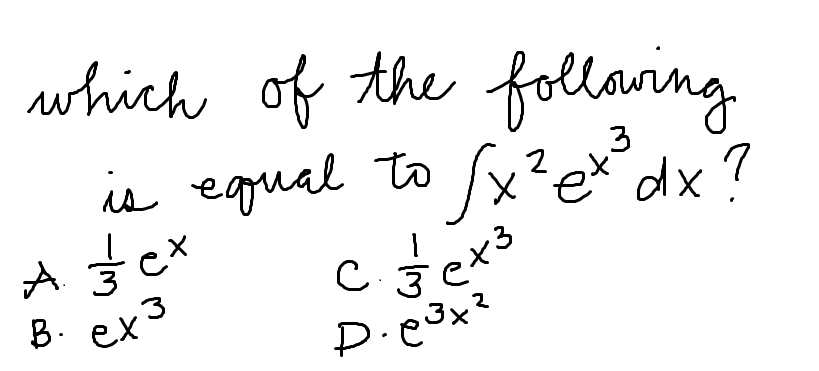 which of the following
is equal to ∫x²eˣ³dx?
A. 1/3 eˣ C. 1/3 eˣ³
B. ex³ D. e³ˣ²